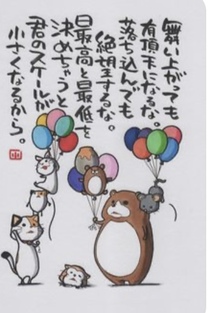 舞い上がっても
有頂天になるな。
落ち込んでも
絶望するな。
最高と最低を
決めちゃうと
君のスケールが
小さくなるから。